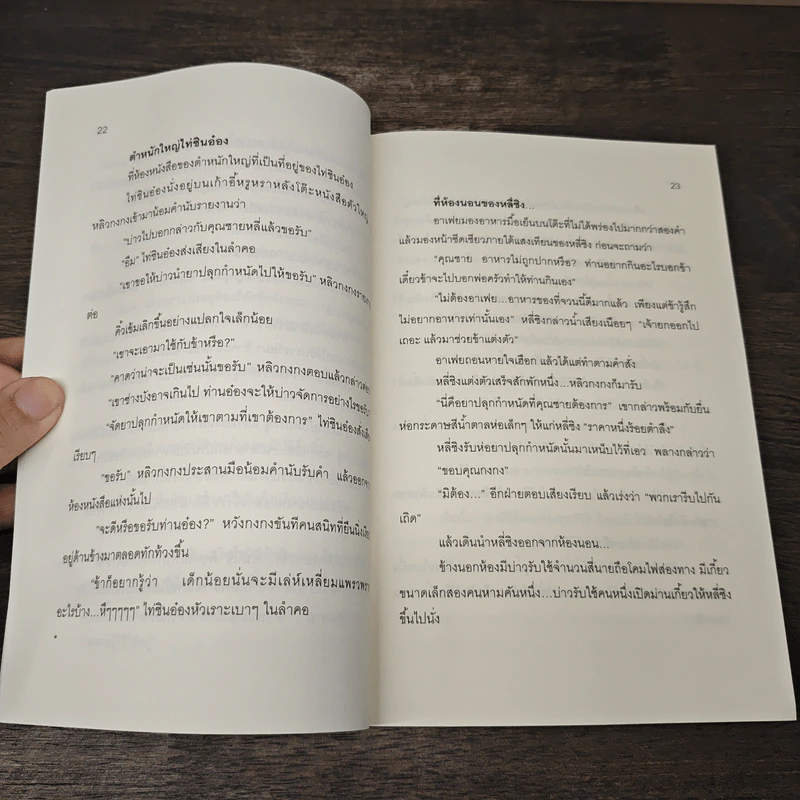 22
ตำหนักใหญ่ไท่ซินอ๋อง
ที่ห้องหนังสือของตำหนักใหญ่ที่เป็นที่อยู่ของไท่ซินอ๋อง
ไท่ซินอ๋องนั่งอยู่บนเก้าอี้หรูหราหลังโต๊ะหนังสือตัวใหญ่
หลิวกงกงเข้ามาน้อมคำนับรายงานว่า
"บ่าวไปบอกกล่าวกับคุณชายหลี่แล้วขอรับ"
"อืม" ไท่ซินอ๋องส่งเสียงในลำคอ
"เขาขอให้บ่าวนำยาปลุกกำหนัดไปให้ขอรับ" หลิวกงกงรายงาน
ต่อ
คิ้วเข้มเลิกขึ้นอย่างแปลกใจเล็กน้อย
"เขาจะเอามาใช้กับข้าหรือ?"
"คาดว่าน่าจะเป็นเช่นนั้นขอรับ" หลิวกงกงตอบแล้วกล่าวต่อ
"เขาช่างบังอาจเกินไป ท่านอ๋องจะให้บ่าวจัดการอย่างไรขอรับ"
"จัดยาปลุกกำหนัดให้เขาตามที่เขาต้องการ" ไท่ซินอ๋องสั่งเสียง
เรียบๆ
"ขอรับ" หลิวกงกงประสานมือน้อมคำนับรับคำ แล้วออกจาก
ห้องหนังสือแห่งนั้นไป
"จะดีหรือขอรับท่านอ๋อง?" หวังกงกงขันทีคนสนิทที่ยืนนิ่งเงียบ
อยู่ด้านข้างมาตลอดทักท้วงขึ้น
"ข้าก็อยากรู้ว่า เด็กน้อยนั่นจะมีเล่ห์เหลี่ยมแพรวพราว
อะไรบ้าง...หึๆๆๆๆๆ" ไท่ซินอ๋องหัวเราะเบาๆ ในลำคอ
*
23
ที่ห้องนอนของหลี่ซิง...
อาเฟยมองอาหารมื้อเย็นบนโต๊ะที่ไม่ได้พร่องไปมากกว่าสองคำ
แล้วมองหน้าซีดเซียวภายใต้แสงเทียนของหลี่ซิง ก่อนจะถามว่า
"คุณชาย อาหารไม่ถูกปากหรือ? ท่านอยากกินอะไรบอกข้า
เดี๋ยวข้าจะไปบอกพ่อครัวทำให้ท่านกินเอง"
"ไม่ต้องอาเฟย...อาหารของที่จวนนี้ดีมากแล้ว เพียงแต่ข้ารู้สึก
ไม่อยากอาหารเท่านั้นเอง" หลี่ซิงกล่าวน้ำเสียงเนือยๆ "เจ้ายกออกไป
เถอะ แล้วมาช่วยข้าแต่งตัว"
อาเฟยถอนหายใจเฮือก แล้วได้แต่ทำตามคำสั่ง
หลี่ซิงแต่งตัวเสร็จสักพักหนึ่ง...หลิวกงกงก็มารับ
"นี่คือยาปลุกกำหนัดที่คุณชายต้องการ" เขากล่าวพร้อมกับยื่น
ห่อกระดาษสีน้ำตาลห่อเล็กๆ ให้แก่หลี่ซิง "ราคาหนึ่งร้อยตำลึง"
หลี่ซิงรับห่อยาปลุกกำหนัดนั้นมาเหน็บไว้ที่เอว พลางกล่าวว่า
"ขอบคุณกงกง"
"มิต้อง..." อีกฝ่ายตอบเสียงเรียบ แล้วเร่งว่า "พวกเรารีบไปกัน
เถิด"
แล้วเดินนำหลี่ซิงออกจากห้องนอน...
ข้างนอกห้องมีบ่าวรับใช้จำนวนสี่นายถือโคมไฟส่องทาง มีเกี้ยว
ขนาดเล็กสองคนหามคันหนึ่ง...บ่าวรับใช้คนหนึ่งเปิดม่านเกี้ยวให้หลี่ซิง
ขึ้นไปนั่ง